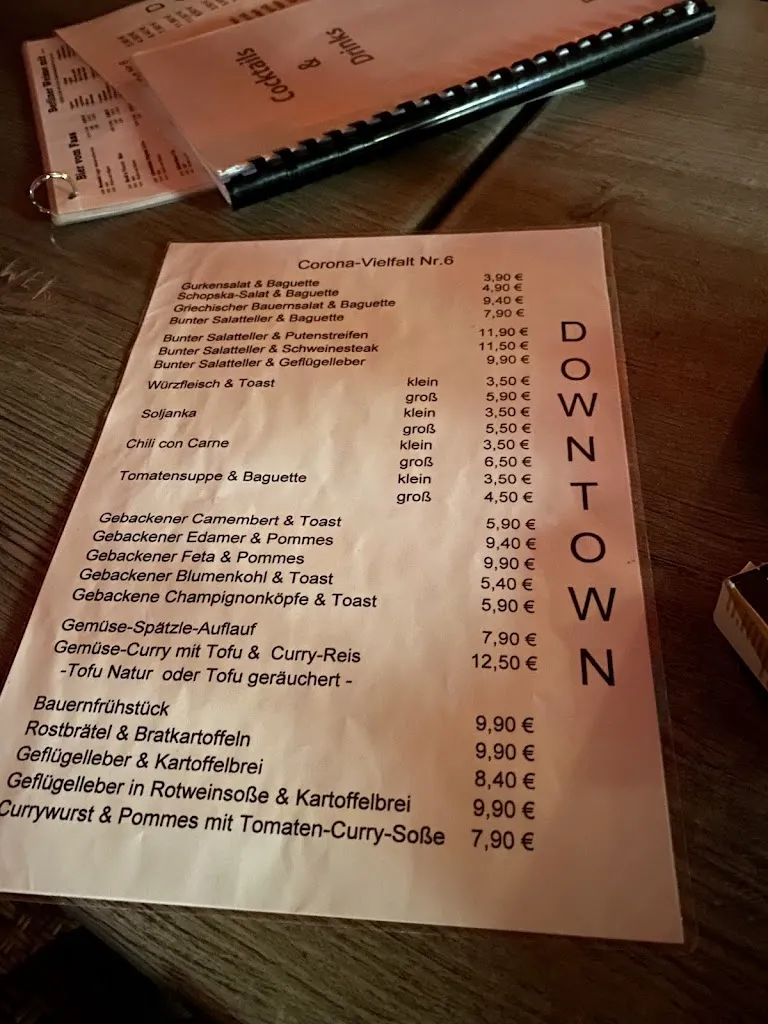 Cocktails
&
Drinks
Berliner Weisse mit
Bier vom Fass
Corona-Vielfalt Nr.6
Gurkensalat & Baguette 3,90 €
Schopska-Salat & Baguette 4,90 €
Griechischer Bauernsalat & Baguette 9,40 €
Bunter Salatteller & Baguette 7,90 €
Bunter Salatteller & Putenstreifen 11,90 €
Bunter Salatteller & Schweinesteak 11,50 €
Bunter Salatteller & Geflügelleber 9,90 €
Würzfleisch & Toast klein 3,50 €
groß 5,90 €
Soljanka klein 3,50 €
groß 5,50 €
Chili con Carne klein 3,50 €
groß 6,50 €
Tomatensuppe & Baguette klein 3,50 €
groß 4,50 €
Gebackener Camembert & Toast 5,90 €
Gebackener Edamer & Pommes 9,40 €
Gebackener Feta & Pommes 9,90 €
Gebackener Blumenkohl & Toast 5,40 €
Gebackene Champignonköpfe & Toast 5,90 €
Gemüse-Spätzle-Auflauf 7,90 €
Gemüse-Curry mit Tofu & Curry-Reis 12,50 €
-Tofu Natur oder Tofu geräuchert -
Bauernfrühstück 9,90 €
Rostbrätel & Bratkartoffeln 9,90 €
Geflügelleber & Kartoffelbrei 8,40 €
Geflügelleber in Rotweinsoße & Kartoffelbrei 9,90 €
Currywurst & Pommes mit Tomaten-Curry-Soße 7,90 €
DOWNTOWN